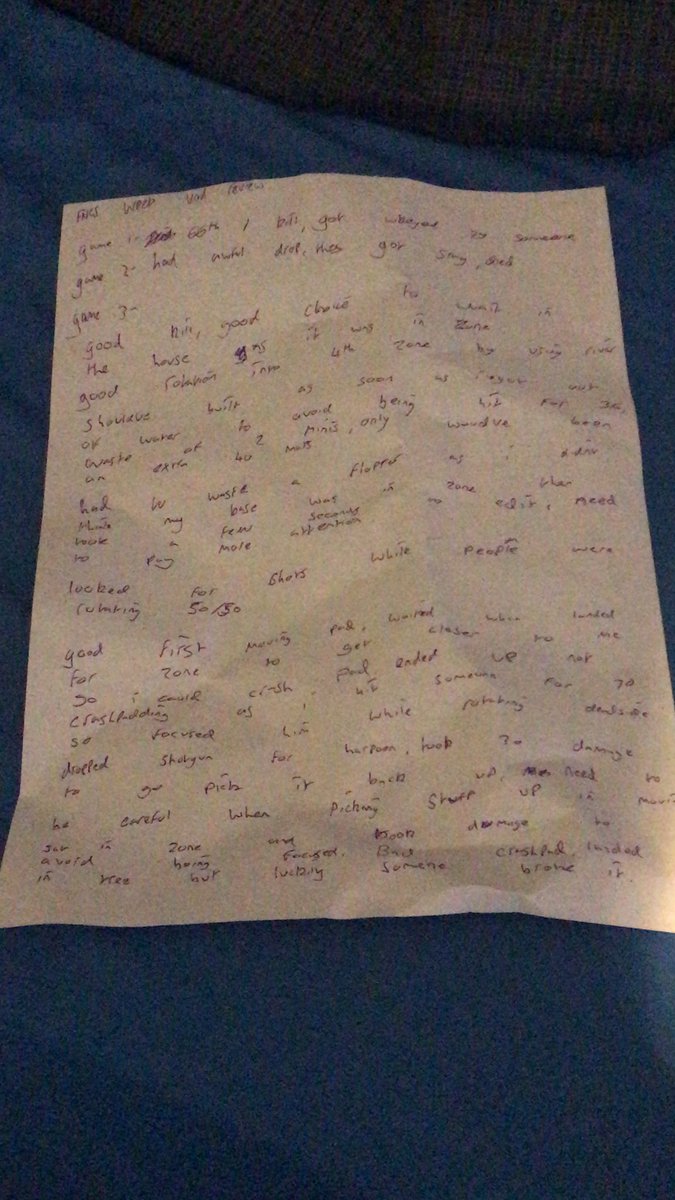 FNCS week vod review
game 1- 66th 1 kill, got by someone
game 2- had awful drop, then got smg, died
game 3-
good kill, good choice to wait in
the house as it was in zone
good rotation into 4th zone by using river
shouldve built as soon as i got out
of water to avoid being hit for 36,
waste of 2 minis, only wouldve been
an extra 40 mats
had to waste a flopper as i didnt
think my base was in zone then
took a few seconds to edit, need
to pay more attention
looked for shots while people were
rotating 50/50
good first moving pad, waited when landed
for zone to get closer to me
so i could crash pad ended up not
crashpadding as i hit someone for 70
so focused him while rotating deadside
dropped shotgun for harpoon, took 30 damage
to go pick it back up, need to
be careful when picking stuff up in movin
sat in zone and took damage to
avoid being focused. Bad crashpad, landed
in tree but luckily someone broke it.